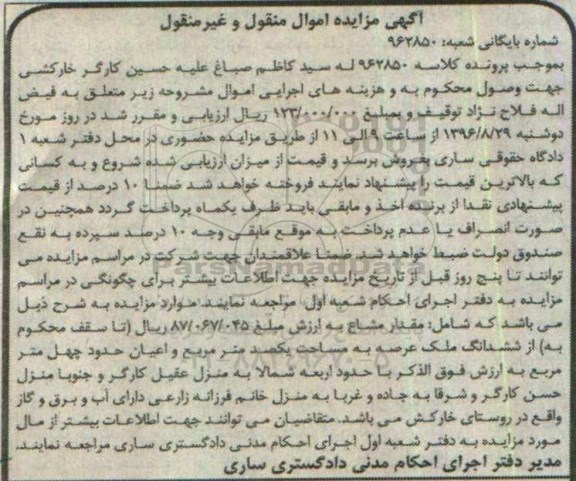 آگهی مزایده اموال منقول و غیرمنقول
شماره بایگانی شعبه: ۹۶۲۸۵۰
بموجب پرونده کلاسه ۹۶۲۸۵۰ له سید کاظم صباغ علیه حسین کارگر خارکشی
جهت وصول محکوم به و هزینه های اجرایی اموال مشروحه زیر متعلق به فیض
اله فلاح نژاد توقیف و بمبلغ ۱۲۳/۰۰۰/۰۰۰ ریال ارزیابی و مقرر شد در روز مورخ
دوشنبه ۱۳۹۶/۸/۲۹ از ساعت ۹ الی ۱۱ از طریق مزایده حضوری در محل دفتر شعبه ۱
دادگاه حقوقی ساری بفروش برسد و قیمت از میزان ارزیابی شده شروع و به کسانی
که بالاترین قیمت را پیشنهاد نمایند فروخته خواهد شد ضمنا ۱۰ درصد از قیمت
پیشنهادی نقدا از برنده اخذ و مابقی باید ظرف یکماه پرداخت گردد همچنین در
صورت انصراف یا عدم پرداخت به موقع مابقی وجه ۱۰ درصد سپرده به نفع
صندوق دولت ضبط خواهد شد. ضمنا علاقمندان جهت شرکت در مراسم مزایده می
توانند تا پنج روز قبل از تاریخ مزایده جهت اطلاعات بیشتر برای چگونگی در مراسم
مزایده به دفتر اجرای احکام شعبه اول مراجعه نمایند. موارد مزایده به شرح ذیل
می باشد که شامل: مقدار مشاع به ارزش مبلغ ۸۷/۰۶۷/۰۴۵ ریال (تا سقف محکوم
به) از ششدانگ ملک عرصه به مساحت یکصد متر مربع و اعیان حدود چهل متر
مربع به ارزش فوق الذکر با حدود اربعه شمالا به منزل عقیل کارگر و جنوبا منزل
حسن کارگر و شرقا به جاده و غربا به منزل خانم فرزانه زارعی دارای آب و برق و گاز
واقع در روستای خارکش می باشد. متقاضیان می توانند جهت اطلاعات بیشتر از مال
مورد مزایده به دفتر شعبه اول اجرای احکام مدنی دادگستری ساری مراجعه نمایند.
مدیر دفتر اجرای احکام مدنی دادگستری ساری